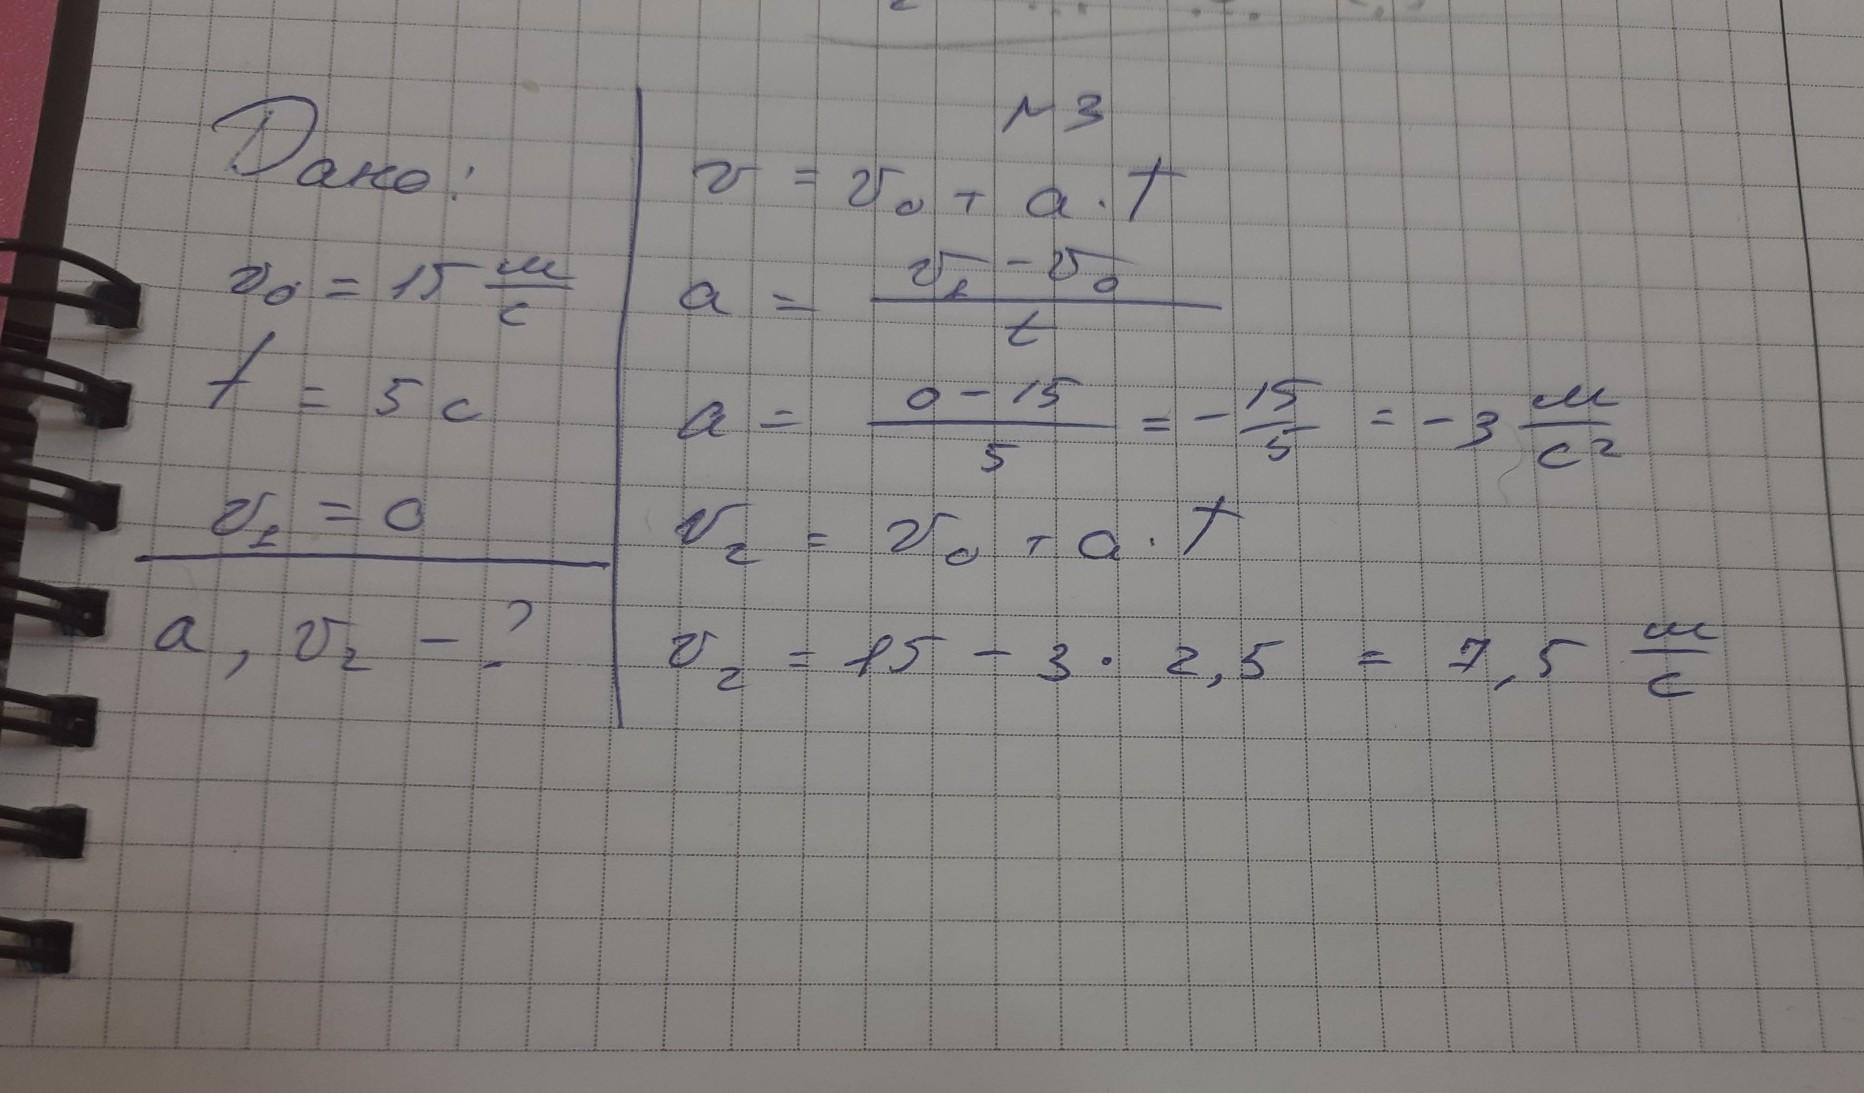 Дано:
v₀ = 15 м/с
t = 5 с
v₁ = 0
a, v₂ - ?
№3
v = v₀ + a · t
a = (v₁ - v₀)/t
a = (0 - 15)/5 = - 15/5 = - 3 м/с²
v₂ = v₀ + a · t
v₂ = 15 - 3 · 2,5 = 7,5 м/с